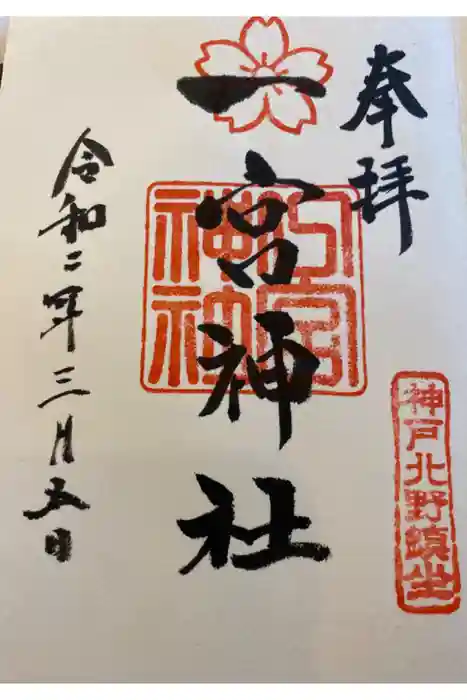 奉拝
神戸北野鎮坐
一宮神社
令和二年三月五日